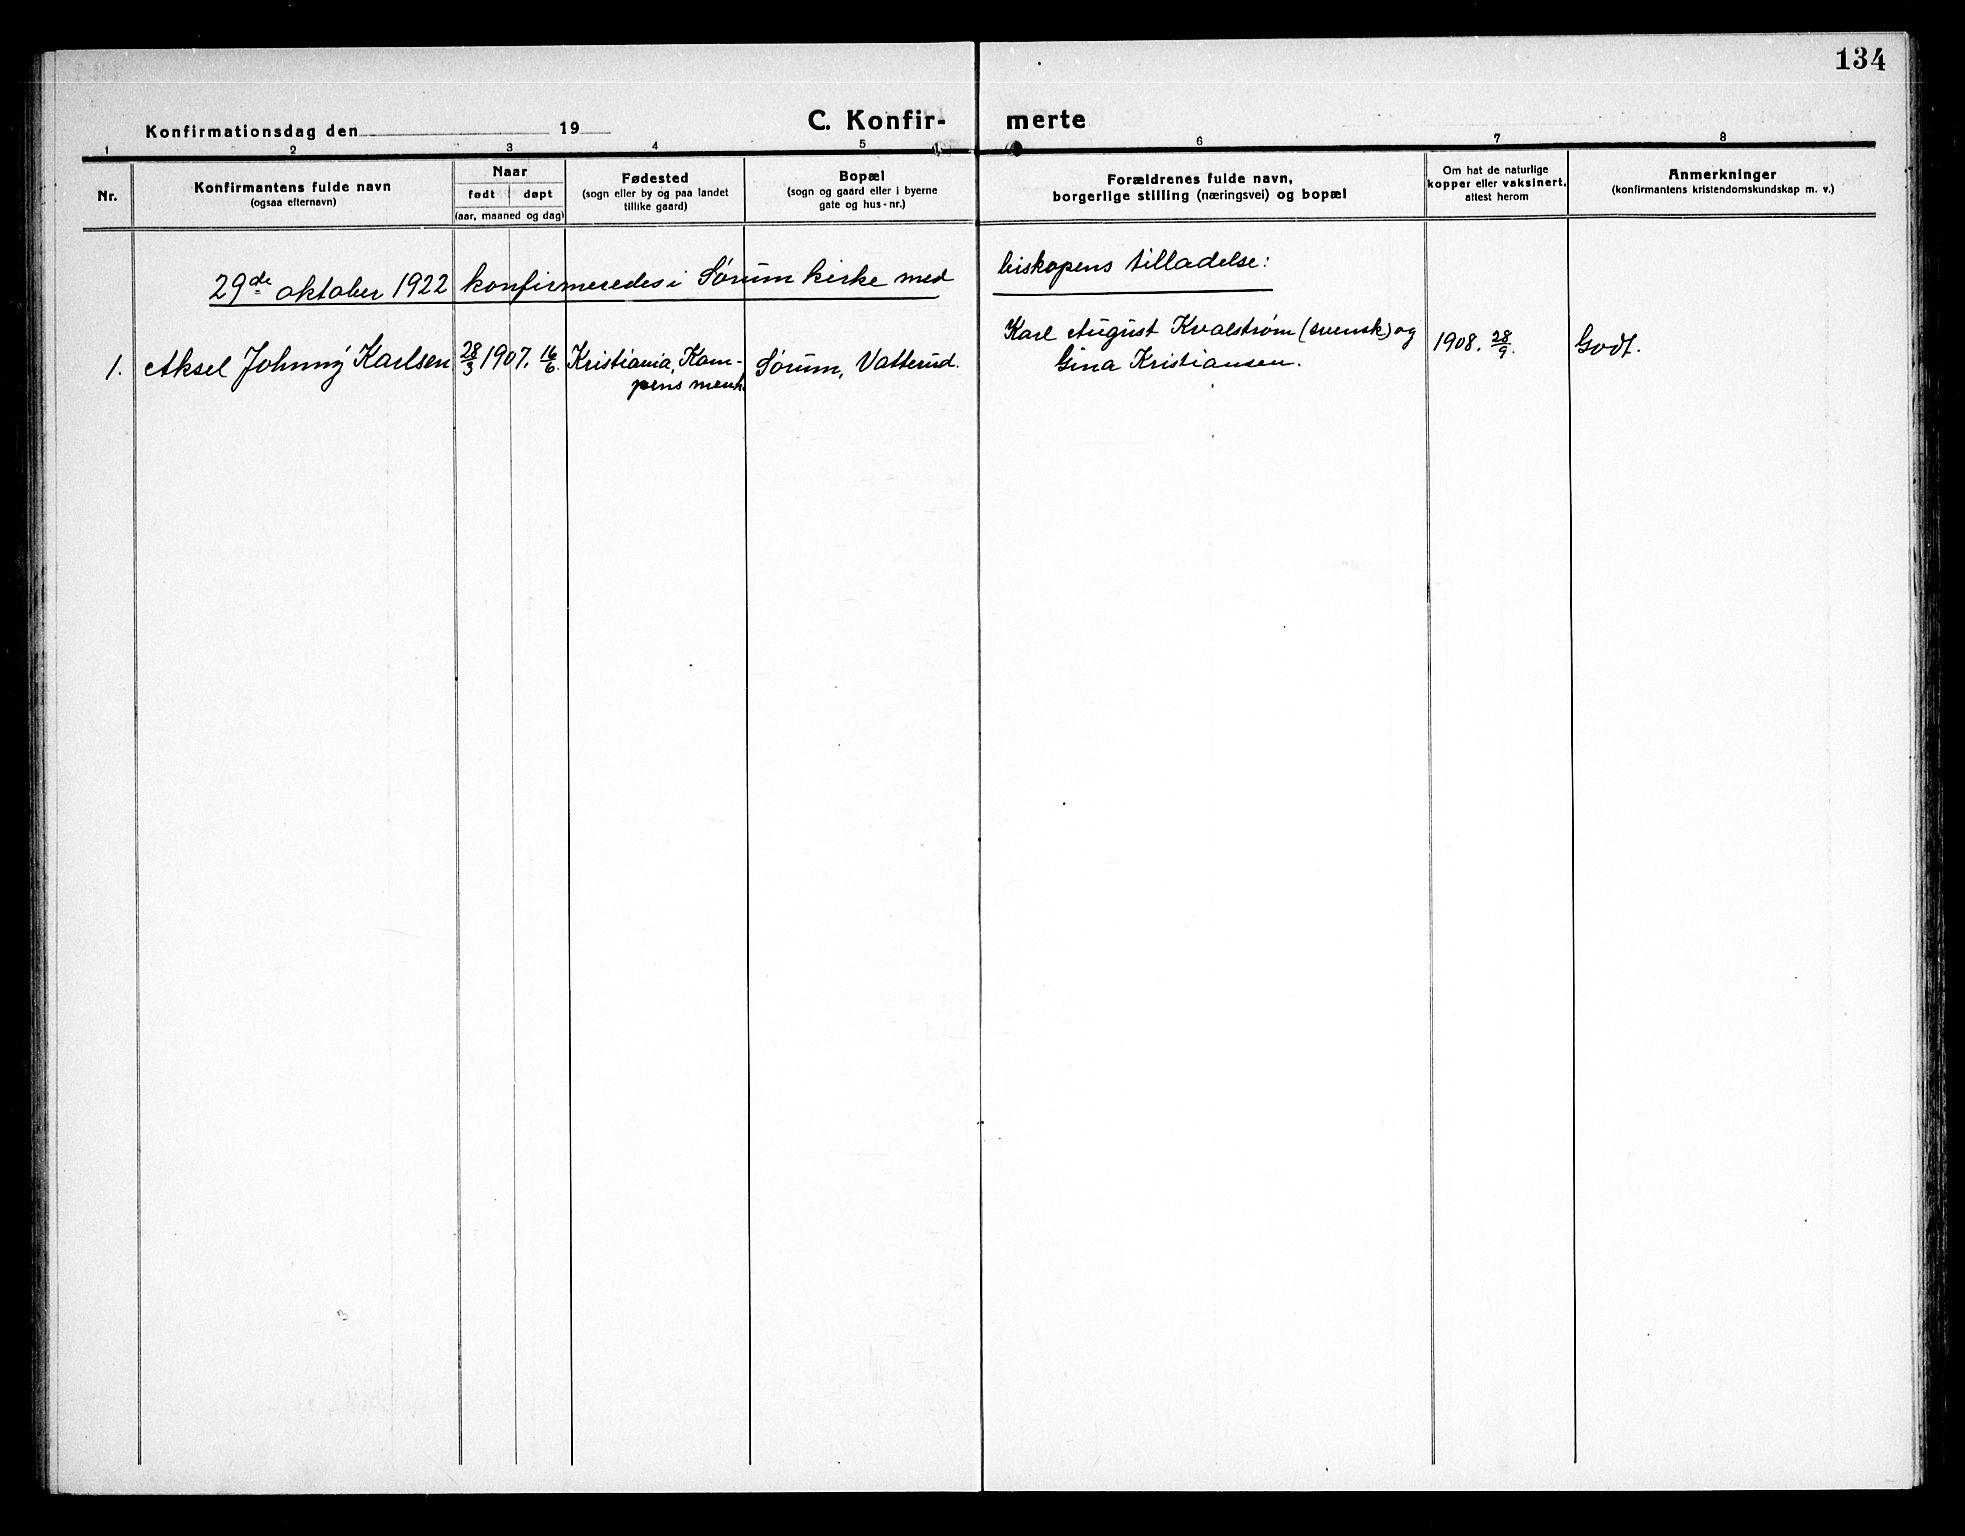 134
Konfirmationsdag den 19
C. Konfir-
merte
1 2 3 4 5 6 7 8
Nr.
Konfirmantens fulde navn
(ogsaa efternavn)
Naar
født døpt
(aar, maaned og dag)
Fødested
(sogn eller by og paa landet
tillike gaard)
Bopæl
(sogn og gaard eller i byerne
gate og hus-nr.)
Forældrenes fulde navn,
borgerlige stilling (næringsvei) og bopæl
Om hat de naturlige
kopper eller vaksinert,
attest herom
Anmerkninger
(konfirmantens kristendomskundskap m. v.)
29de oktober 1922 konfirmeredes i Sørum kirke med
biskopens tilladelse:
1. Aksel Johnny Karlsen 28/3 1907. 16/6. Kristiania, Kam-
pens menh.
Sørum, Vatterud.
Karl August Kvalstrøm (svensk) og
Gina Kristiansen.
1908. 28/9.
Godt.